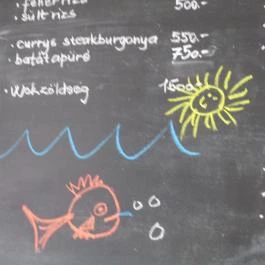 · fehér rizs 500.-
· sült rizs
· currys steakburgonya 550.-
· batátapüré 750.-
· Wokzöldség 1500.-